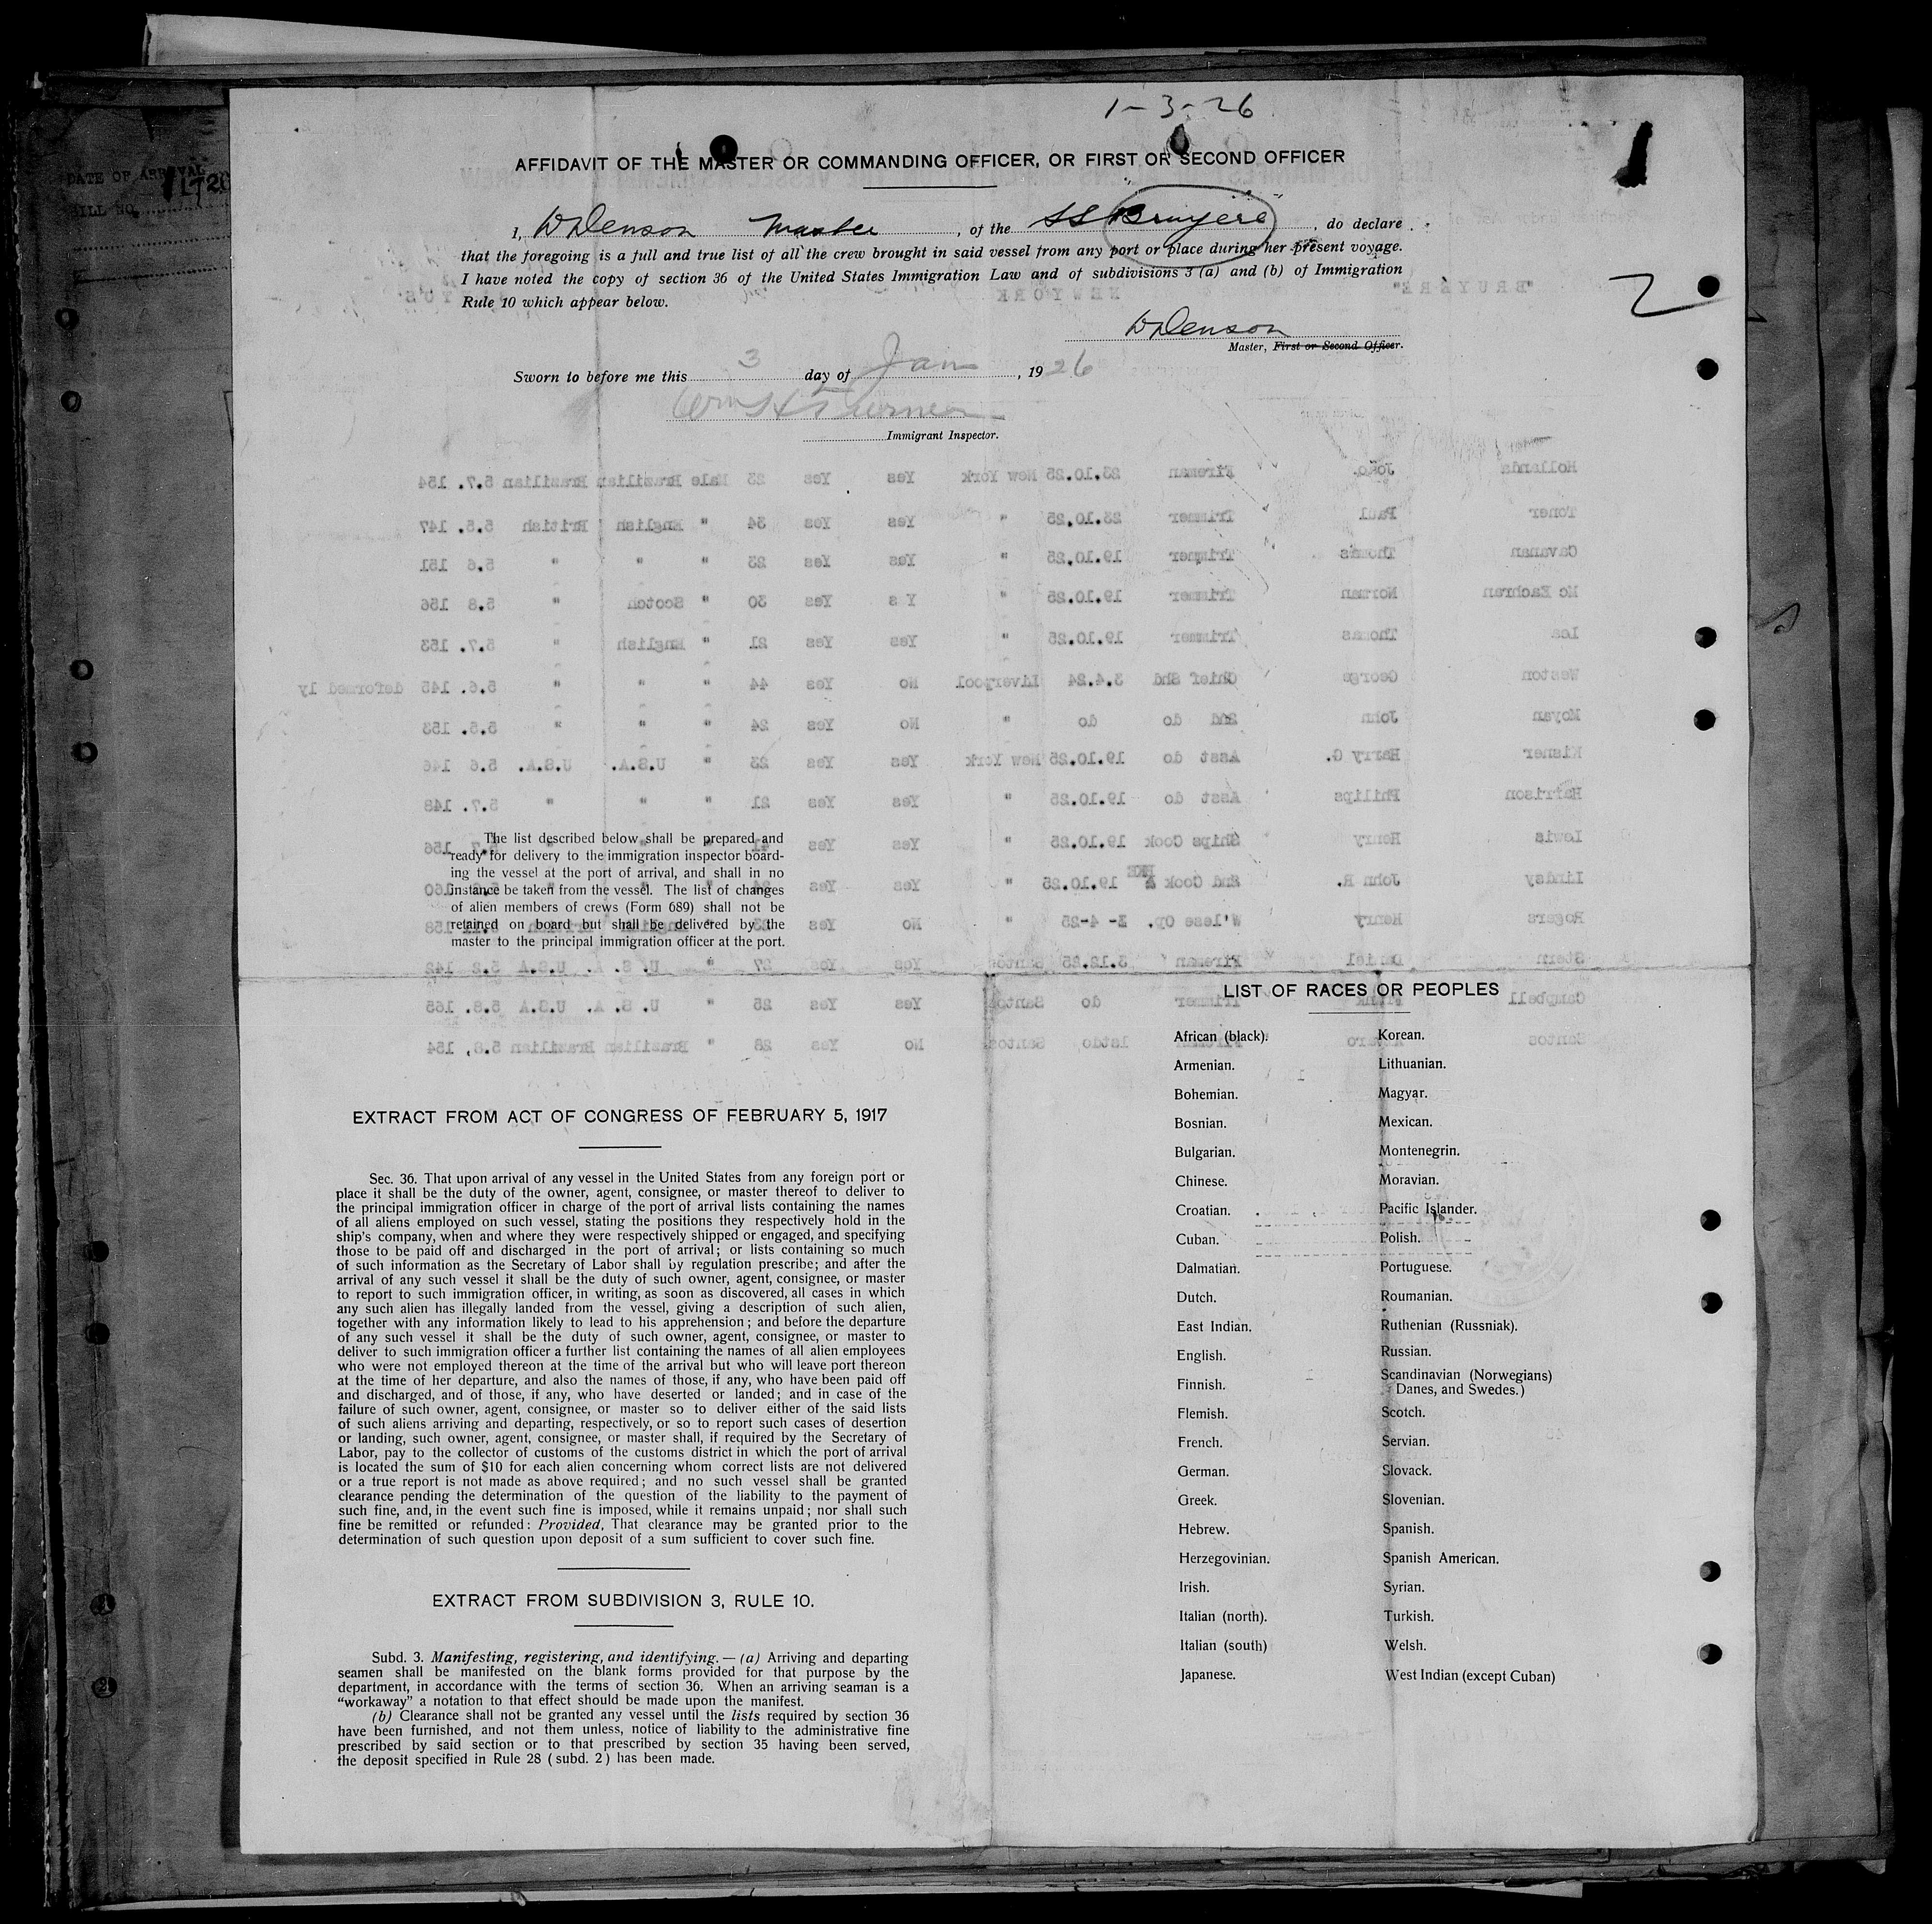 1-3-26
AFFIDAVIT OF THE MASTER OR COMMANDING OFFICER, OR FIRST OR SECOND OFFICER
I, Denson Master, of the SS "Bruyere", do declare
that the foregoing is a full and true list of all the crew brought in said vessel from any port or place during her present voyage.
I have noted the copy of section 36 of the United States Immigration Law and of subdivisions 3 (a) and (b) of Immigration
Rule 10 which appear below.
"BRUYERE" NEW YORK
2
Denson
Master, First or Second Officer.
Sworn to before me this 3 day of Jan, 1926
Immigrant Inspector.
DATE OF ARRIVAL
Hollanda João. Fireman 23.10.25 New York Yes Yes 23 Male Brazilian Brazilian 5.7. 154
Toner Paul Trimmer 23.10.25 " Yes Yes 34 " English British 5.5. 147
Cavanan Thomas Trimmer 19.10.25 " Yes Yes 23 " " " 5.6 151
Mc Eachran Norman Trimmer 19.10.25 " Y s Yes 30 " Scotch " 5.8 156
Lea Thomas Trimmer 19.10.25 " Yes Yes 21 " English " 5.7. 153
Weston George Chief Shd 3.4.24 Liverpool No Yes 44 " " " 5.6. 145 deformed ly
Moyan John 2nd do do " No Yes 24 " " " 5.5. 153
Kisner Harry G. Asst do 19.10.25 New York Yes Yes 23 " U.S.A. U.S.A. 5.6 146
Harrison Philips Asst do 19.10.25 " Yes Yes 21 " " " 5.7. 148
Lewis Henry Ships Cook 19.10.25 " Yes Yes 156
Lindsy John R. 2nd Cook & 19.10.25 " Yes Yes 160
Rogers Henry W'less Op. 3-4-25 " No Yes 158
Stern Daniel Fireman 3.12.25 Santos Yes Yes 27 " U.S.A. U.S.A 5.2 142
Campbell Trimmer do Santos Yes Yes 25 " U.S.A. U.S.A 5.8. 165
Santos Fireman do Santos No Yes 28 " Brazilian Brazilian 5.8, 154
The list described below shall be prepared and
ready for delivery to the immigration inspector board-
ing the vessel at the port of arrival, and shall in no
instance be taken from the vessel. The list of changes
of alien members of crews (Form 689) shall not be
retained on board but shall be delivered by the
master to the principal immigration officer at the port.
EXTRACT FROM ACT OF CONGRESS OF FEBRUARY 5, 1917
Sec. 36. That upon arrival of any vessel in the United States from any foreign port or
place it shall be the duty of the owner, agent, consignee, or master thereof to deliver to
the principal immigration officer in charge of the port of arrival lists containing the names
of all aliens employed on such vessel, stating the positions they respectively hold in the
ship's company, when and where they were respectively shipped or engaged, and specifying
those to be paid off and discharged in the port of arrival; or lists containing so much
of such information as the Secretary of Labor shall by regulation prescribe; and after the
arrival of any such vessel it shall be the duty of such owner, agent, consignee, or master
to report to such immigration officer, in writing, as soon as discovered, all cases in which
any such alien has illegally landed from the vessel, giving a description of such alien,
together with any information likely to lead to his apprehension; and before the departure
of any such vessel it shall be the duty of such owner, agent, consignee, or master to
deliver to such immigration officer a further list containing the names of all alien employees
who were not employed thereon at the time of the arrival but who will leave port thereon
at the time of her departure, and also the names of those, if any, who have been paid off
and discharged, and of those, if any, who have deserted or landed; and in case of the
failure of such owner, agent, consignee, or master so to deliver either of the said lists
of such aliens arriving and departing, respectively, or so to report such cases of desertion
or landing, such owner, agent, consignee, or master shall, if required by the Secretary of
Labor, pay to the collector of customs of the customs district in which the port of arrival
is located the sum of $10 for each alien concerning whom correct lists are not delivered
or a true report is not made as above required; and no such vessel shall be granted
clearance pending the determination of the question of the liability to the payment of
such fine, and, in the event such fine is imposed, while it remains unpaid; nor shall such
fine be remitted or refunded: Provided, That clearance may be granted prior to the
determination of such question upon deposit of a sum sufficient to cover such fine.
EXTRACT FROM SUBDIVISION 3, RULE 10.
Subd. 3. Manifesting, registering, and identifying.—(a) Arriving and departing
seamen shall be manifested on the blank forms provided for that purpose by the
department, in accordance with the terms of section 36. When an arriving seaman is a
"workaway" a notation to that effect should be made upon the manifest.
(b) Clearance shall not be granted any vessel until the lists required by section 36
have been furnished, and not them unless, notice of liability to the administrative fine
prescribed by said section or to that prescribed by section 35 having been served,
the deposit specified in Rule 28 (subd. 2) has been made.
LIST OF RACES OR PEOPLES
African (black).
Armenian.
Bohemian.
Bosnian.
Bulgarian.
Chinese.
Croatian.
Cuban.
Dalmatian.
Dutch.
East Indian.
English.
Finnish.
Flemish.
French.
German.
Greek.
Hebrew.
Herzegovinian.
Irish.
Italian (north).
Italian (south)
Japanese.
Korean.
Lithuanian.
Magyar.
Mexican.
Montenegrin.
Moravian.
Pacific Islander.
Polish.
Portuguese.
Roumanian.
Ruthenian (Russniak).
Russian.
Scandinavian (Norwegians)
Danes, and Swedes.)
Scotch.
Servian.
Slovack.
Slovenian.
Spanish.
Spanish American.
Syrian.
Turkish.
Welsh.
West Indian (except Cuban)